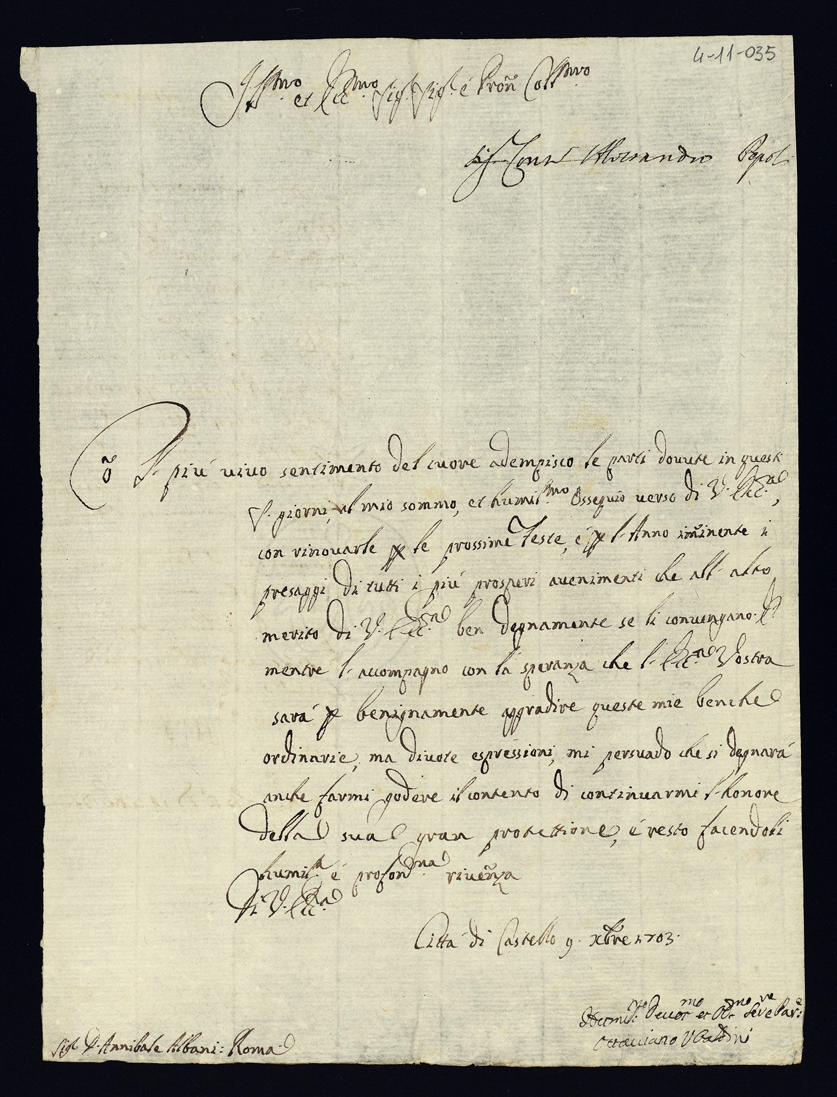 4-11-035
Ill.mo et Ecc.mo Sig.r Sig.r é Pron Coll.mo
Sig.r Conte
Cõ Il piú vivo sentimento del cuore adempisco le parti dovute in questi
S. giorni, al mio sommo, et humil.mo ossequio verso di V. Ecc.a,
con rinovarle p le prossime Feste, é p l'Anno iminente i
presaggi di tutti i piú prosperi avenimenti che all'alto
merito di V. Ecc.a ben degnamente se li convengano. E
mentre l'accompagno con la speranza che l'Ecc.a Vostra
sará p benignamente aggradire queste mie benche
ordinarie, ma divote espressioni, mi persuado che si degnará
anche farmi godere il contento di continuarmi l'honore
della sua gran protettione, é resto facendoli
humil.a é profon.ma riverẽza
Di V. Ecc.a
Cittá di Castello 9. Xbre 1703.
Humil.mo Devot.mo et Obl.mo Ser.re
Ottaviano Ubaldini
Sig.r D. Annibale Albani: Roma